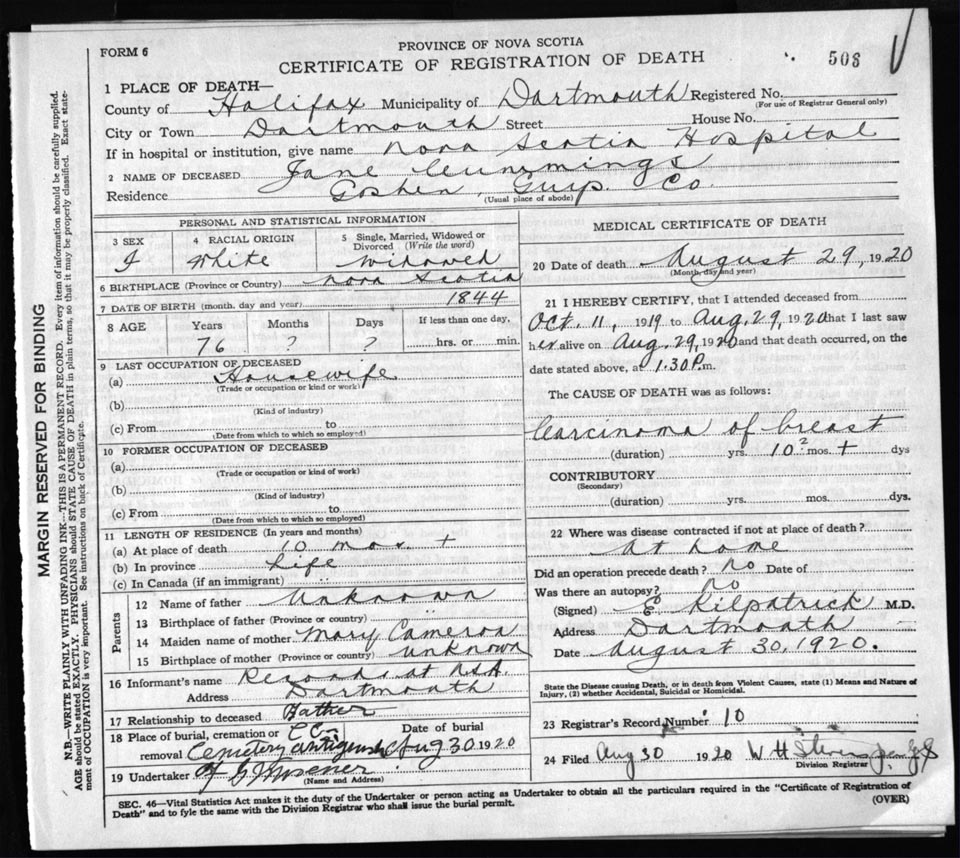 FORM 6
PROVINCE OF NOVA SCOTIA
CERTIFICATE OF REGISTRATION OF DEATH
508
1 PLACE OF DEATH—
County of Halifax Municipality of Dartmouth Registered No.
(For use of Registrar General only)
City or Town Dartmouth Street House No.
If in hospital or institution, give name Nova Scotia Hospital
2 NAME OF DECEASED Jane Cummings
Residence Goshen, Guys. Co.
(Usual place of abode)
PERSONAL AND STATISTICAL INFORMATION
3 SEX
4 RACIAL ORIGIN
5 Single, Married, Widowed or Divorced (Write the word)
F White Widowed
6 BIRTHPLACE (Province or Country) Nova Scotia
7 DATE OF BIRTH (month, day and year) 1844
8 AGE Years Months Days If less than one day,
76 ? ? hrs. or min.
9 LAST OCCUPATION OF DECEASED
(a) Housewife
(Trade or occupation or kind or work)
(b)
(Kind of industry)
(c) From to
(Date from which to which so employed)
10 FORMER OCCUPATION OF DECEASED
(a)
(Trade or occupation or kind of work)
(b)
(Kind of industry)
(c) From to
(Date from which to which so employed)
11 LENGTH OF RESIDENCE (In years and months)
(a) At place of death 10 mos. +
(b) In province Life
(c) In Canada (if an immigrant) "
Parents
12 Name of father Unknown
13 Birthplace of father (Province or country) "
14 Maiden name of mother Mary Cameron
15 Birthplace of mother (Province or country) Unknown
16 Informant's name Records at N.S.H.
Address Dartmouth
17 Relationship to deceased
18 Place of burial, cremation or Date of burial
removal Cemetery Antigonish Aug 30 1920
19 Undertaker
(Name and Address)
MEDICAL CERTIFICATE OF DEATH
20 Date of death August 29, 1920
(Month, day and year)
21 I HEREBY CERTIFY, that I attended deceased from
Oct. 11, 1919 to Aug. 29, 1920 that I last saw
her alive on Aug. 29, 1920 and that death occurred, on the
date stated above, at 1.30 P.m.
The CAUSE OF DEATH was as follows:
Carcinoma of breast
(duration) yrs. 10 ? mos. + dys
CONTRIBUTORY
(Secondary)
(duration) yrs. mos. dys.
22 Where was disease contracted if not at place of death?
At home
Did an operation precede death? No Date of
Was there an autopsy? No
(Signed) E Kilpatrick M.D.
Address Dartmouth
Date August 30, 1920.
State the Disease causing Death, or in death from Violent Causes, state (1) Means and Nature of
Injury, (2) whether Accidental, Suicidal or Homicidal.
23 Registrar's Record Number 10
24 Filed Aug 30 1920 W H
Division Registrar
SEC. 46—Vital Statistics Act makes it the duty of the Undertaker or person acting as Undertaker to obtain all the particulars required in the "Certificate of Registration of
Death" and to fyle the same with the Division Registrar who shall issue the burial permit.
(OVER)
MARGIN RESERVED FOR BINDING
N.B.—WRITE PLAINLY WITH UNFADING INK—THIS IS A PERMANENT RECORD. Every item of information should be carefully supplied.
AGE should be stated EXACTLY. PHYSICIANS should STATE CAUSE OF DEATH in plain terms, so that it may be properly classified. Exact state-
ment of OCCUPATION is very important. See instructions on back of Certificate.